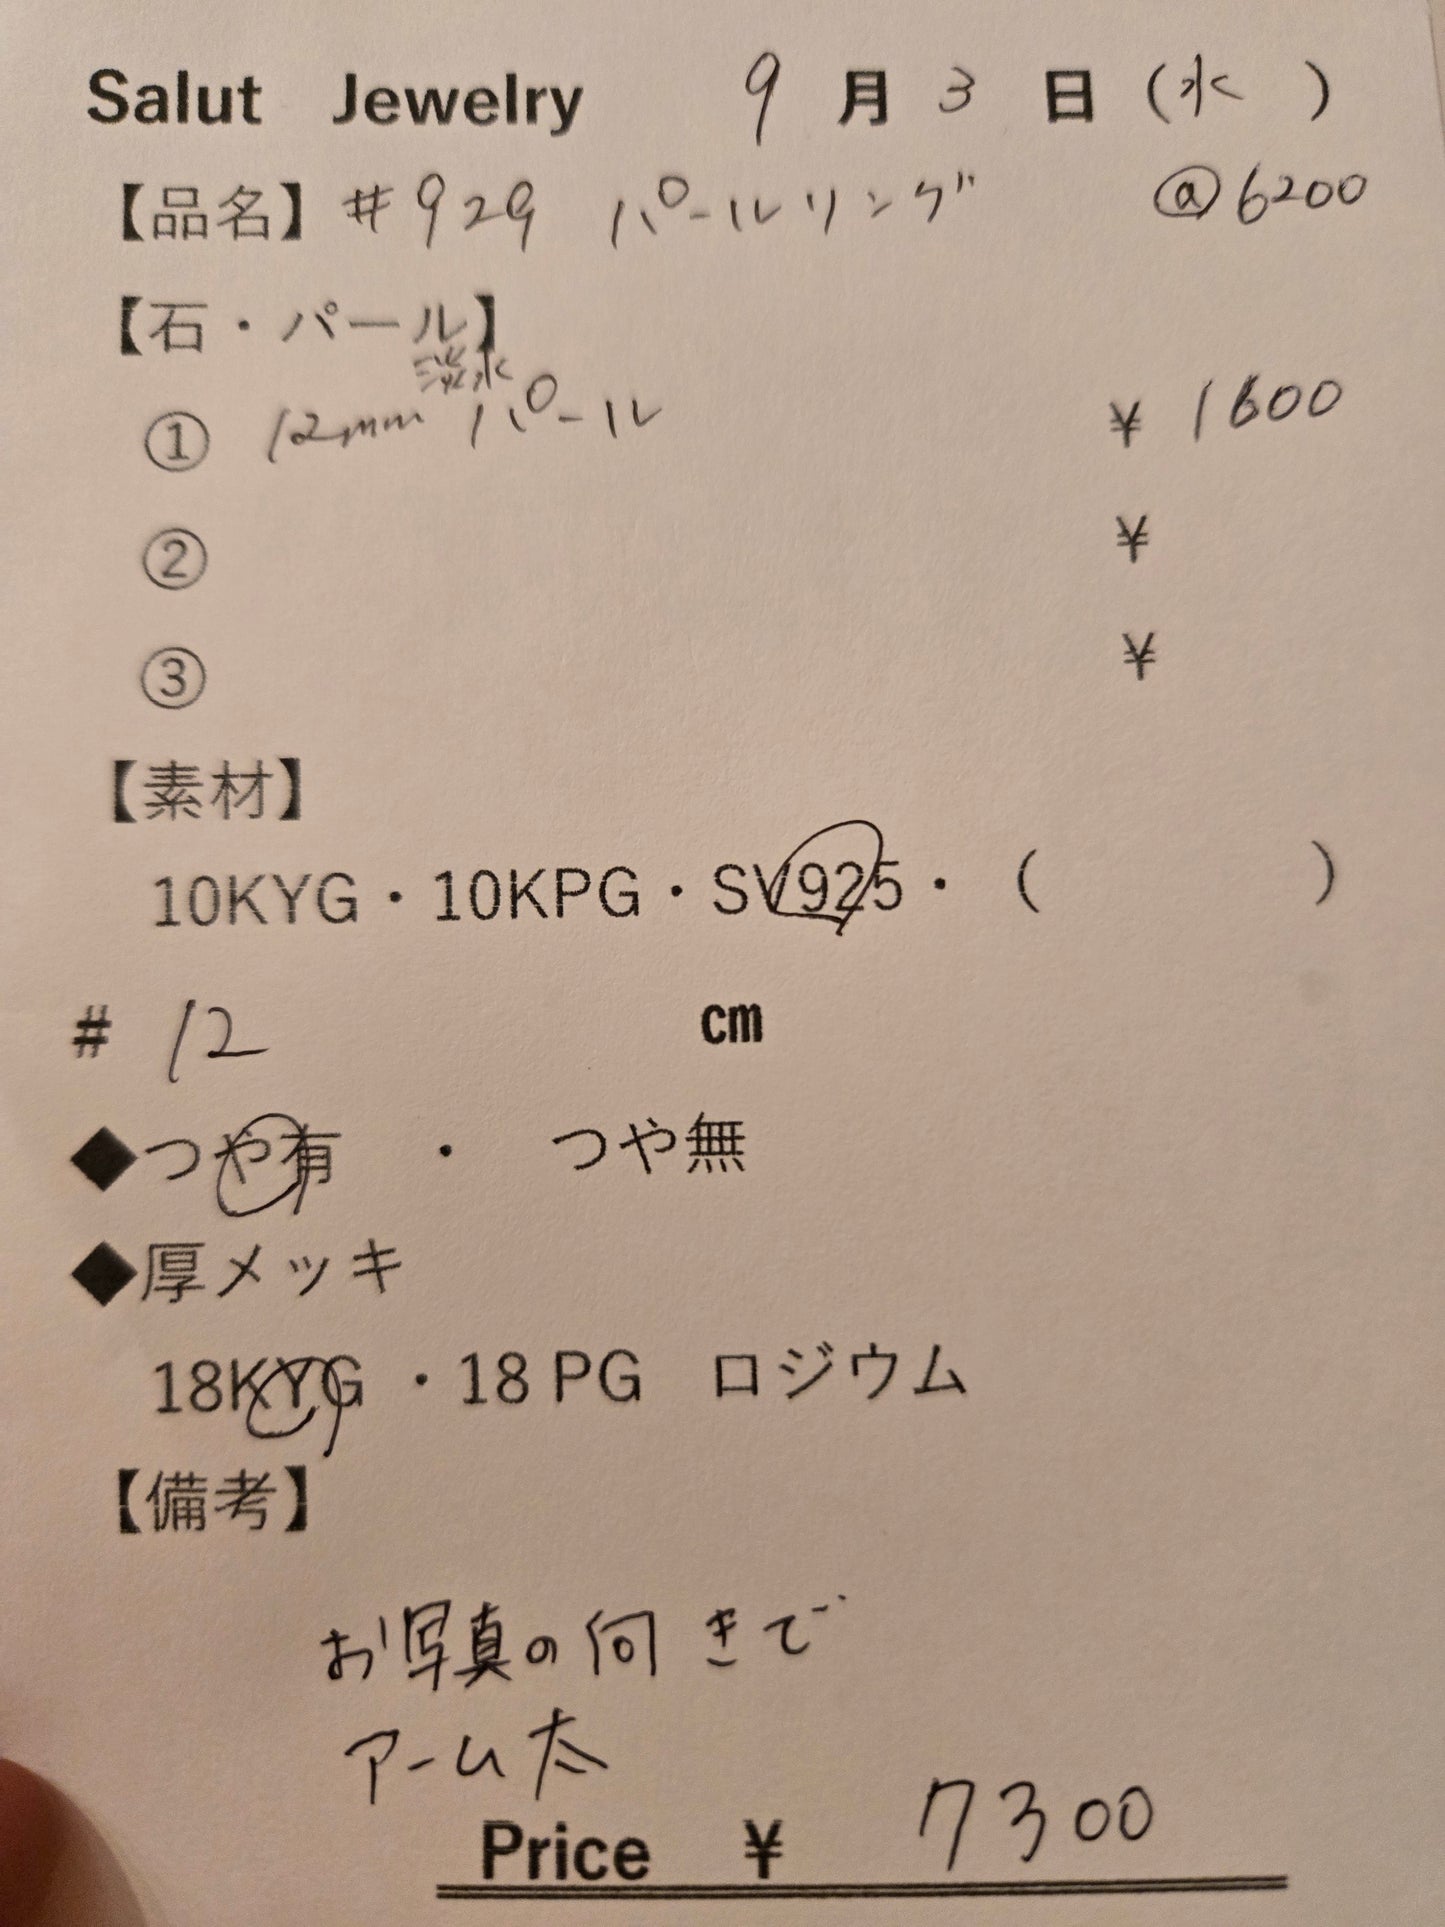 Salut Jewelry 9月3日(水)
【品名】#929 パールリング @6200
【石・パール】
淡水
① 12mm パール ¥1600
② ¥
③ ¥
【素材】
10KYG・10KPG・SV925・( )
# 12 cm
◆つや有 ・ つや無
◆厚メッキ
18KYG ・18 PG ロジウム
【備考】
お写真の向きで
アーム太
Price ¥ 7300